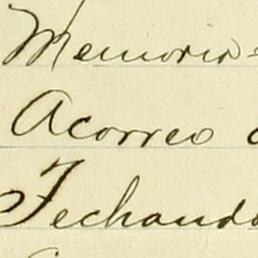 Memorio-
Acorreo
Fechando